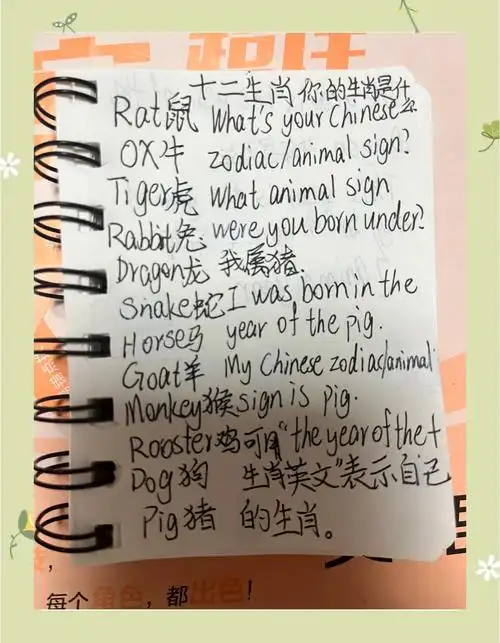 十二生肖 你的生肖是什么
Rat鼠 What's your Chinese
OX牛 zodiac/animal sign?
Tiger虎 What animal sign
Rabbit兔 were you born under?
Dragon龙 我属猪.
Snake蛇 I was born in the
Horse马 year of the pig.
Goat羊 My Chinese zodiac/animal
Monkey猴 sign is pig.
Rooster鸡 可用“the year of the+
Dog狗 生肖英文”表示自己
Pig猪 的生肖。
每个角色，都出色！